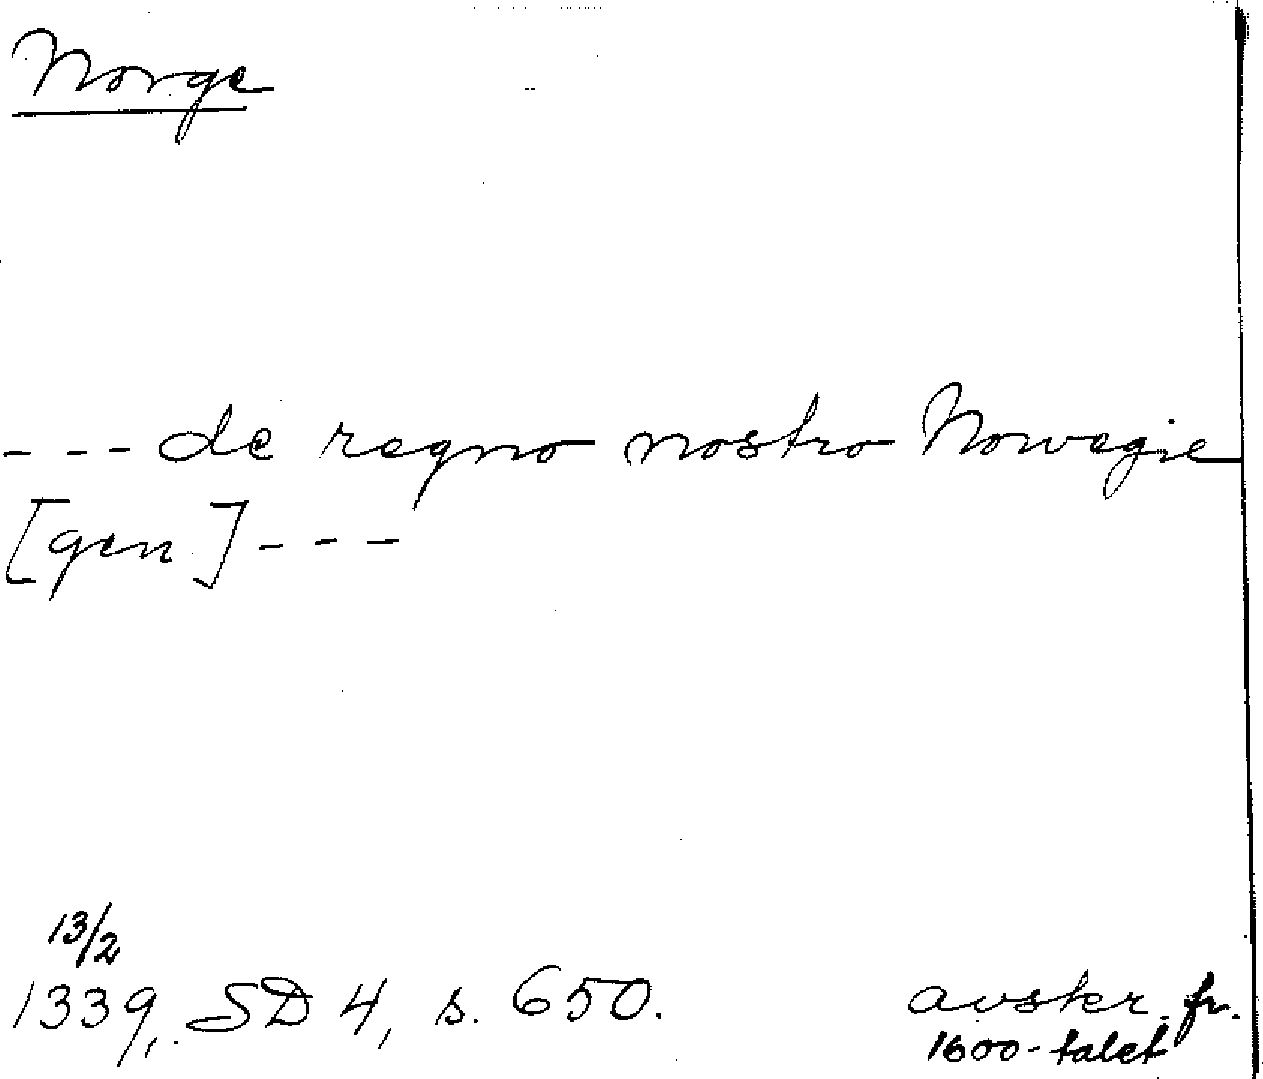 Norge
- - - de regno nostro Norwegie
[gen] - - -
13/2
1339, SD 4, s. 650. avskr. fr.
1600-talet